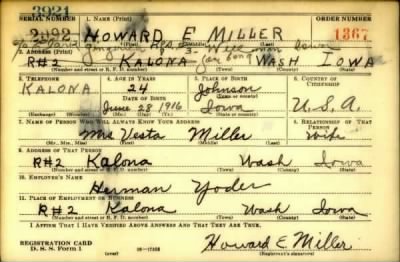 3921
SERIAL NUMBER 1. NAME (Print) ORDER NUMBER
2092 HOWARD E MILLER 1367
R#2 KALONA WASH IOWA
(Number and street or R. F. D. number) (Town) (County) (State)
3. TELEPHONE 4. AGE IN YEARS 5. PLACE OF BIRTH 6. COUNTRY OF CITIZENSHIP
KALONA 24 Johnson
DATE OF BIRTH
June 28 1916 Iowa U.S.A.
(Exchange) (Number) (Mo.) (Day) (Yr.) (State or country)
7. NAME OF PERSON WHO WILL ALWAYS KNOW YOUR ADDRESS 8. RELATIONSHIP OF THAT PERSON
Mrs Vesta Miller Wife
(Mr., Mrs., Miss) (First) (Middle) (Last)
9. ADDRESS OF THAT PERSON
R#2 Kalona Wash Iowa
(Number and street or R. F. D. number) (Town) (County) (State)
10. EMPLOYER'S NAME
Herman Yoder
11. PLACE OF EMPLOYMENT OR BUSINESS
R#2 Kalona Wash Iowa
(Number and street or R. F. D. number) (Town) (County) (State)
I AFFIRM THAT I HAVE VERIFIED ABOVE ANSWERS AND THAT THEY ARE TRUE.
REGISTRATION CARD
D. S. S. Form 1 (over) Howard E. Miller
(Registrant's signature)